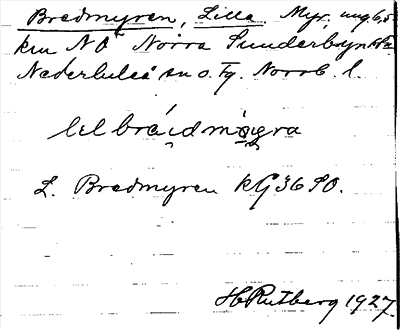 Bredmyren, Lilla Myr. ung 6,5
km NO Norra Sunderbyn
Nederluleå sn o. Tg. Norrb. l.
lelbraidmögra
L. Bredmyren kG 36 SO.
H Rutberg 1927.